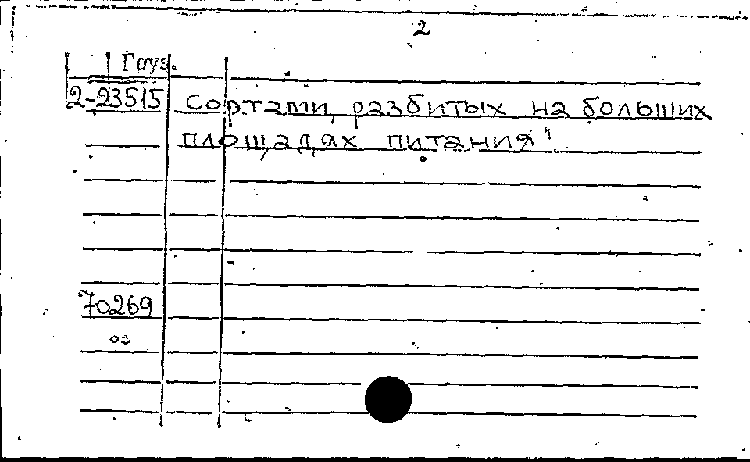 2
Груз.
2-23515 сортами, разбитых на больших
площадях питания"
70269
02